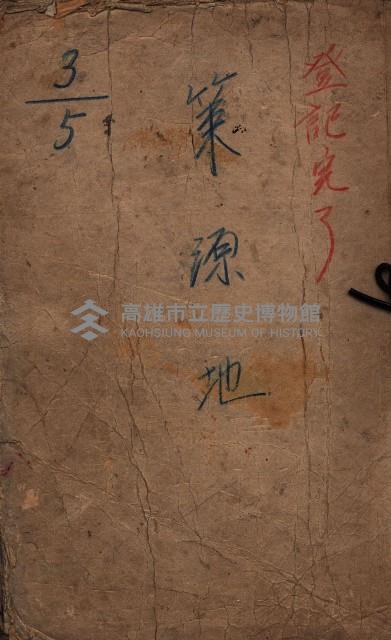 登記完了
策源地
3/5
高雄市立歷史博物館
KAOHSIUNG MUSEUM OF HISTORY